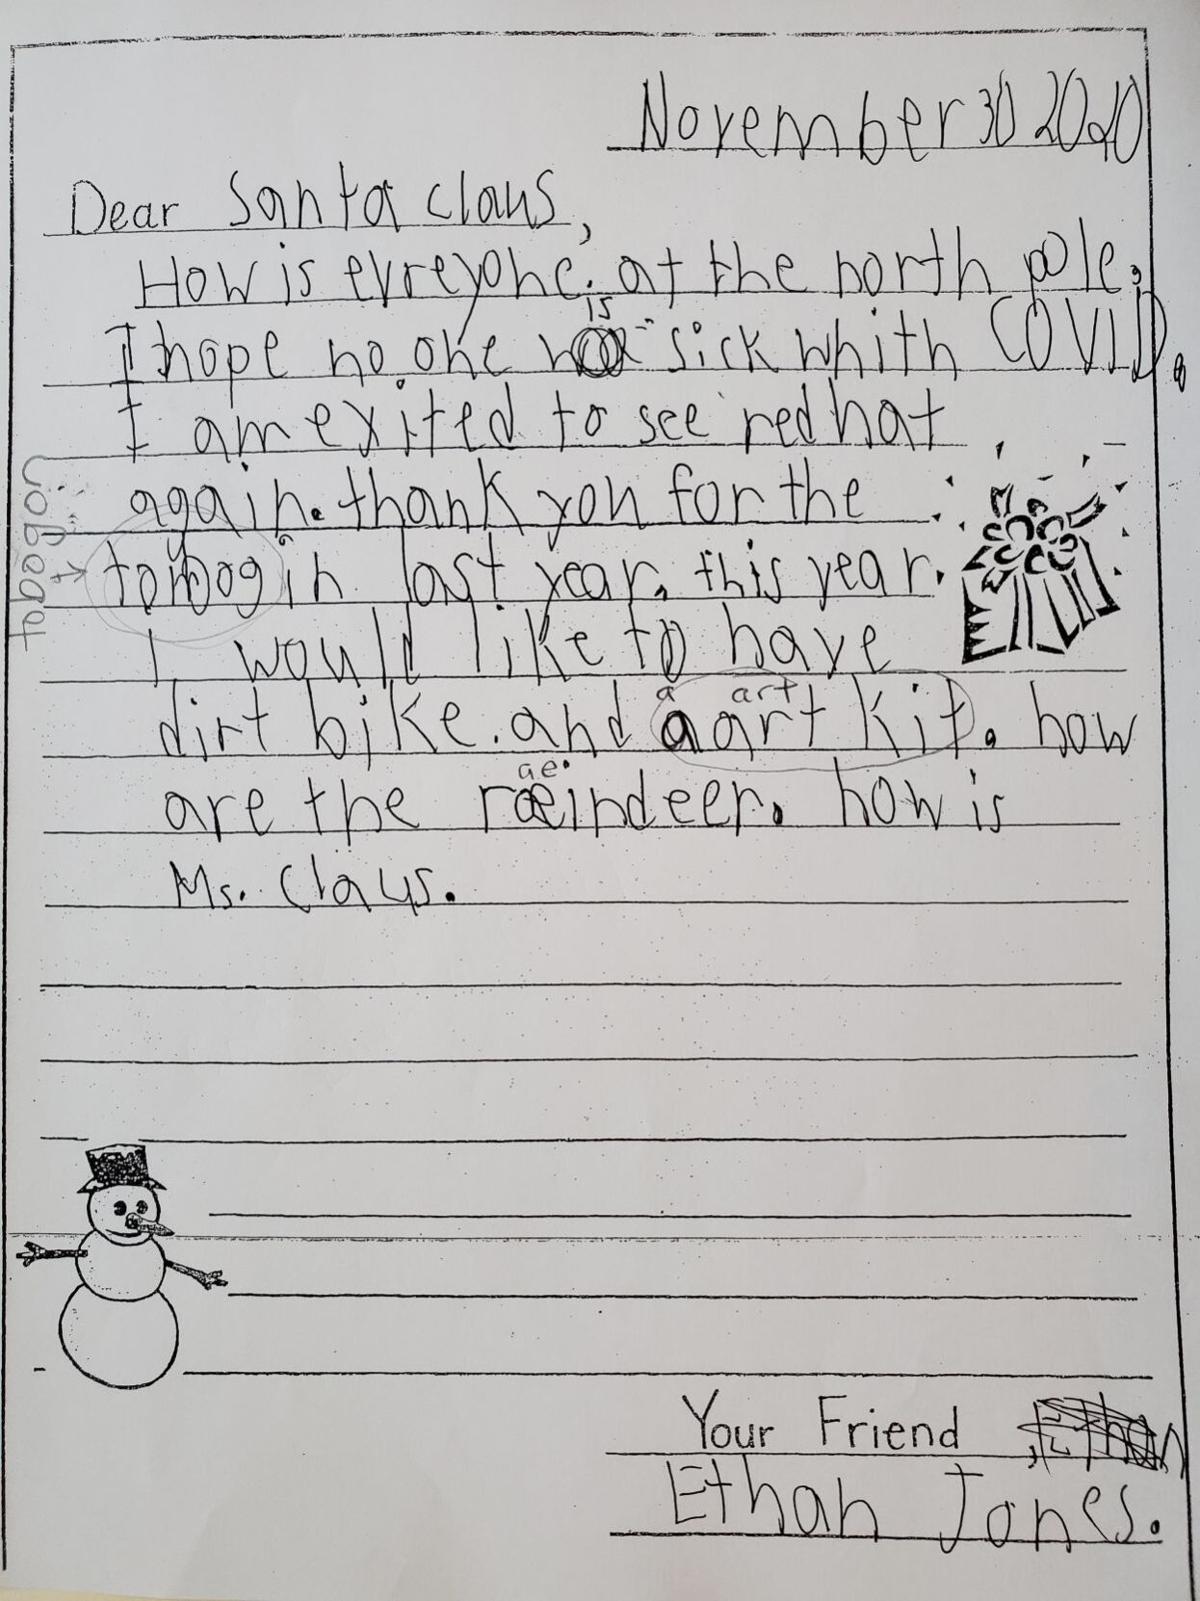 November 30 2020
Dear Santa Claus,
How is evreyone. at the north pole,
is
I hope no one sick whith COVID.
I am exited to see red hat
again. thank you for the
tobogon
tombogin last year. this year.
I would like to have
a art
dirt bike. and a aart kit. how
ae
are the raeindeer. how is
Ms. Claus.
Your Friend, Ethan
Ethan Jones.